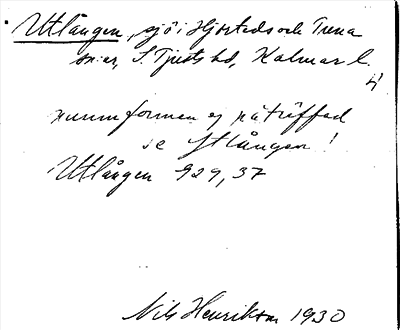 Utlången, sjö i Hjorteds och Trena
sn:ar, S. Tjusts hd, Kalmar l.
4
namnformen ej påträffad
se Stlången!
Utlången 929,37
Nils Henrikson 1930